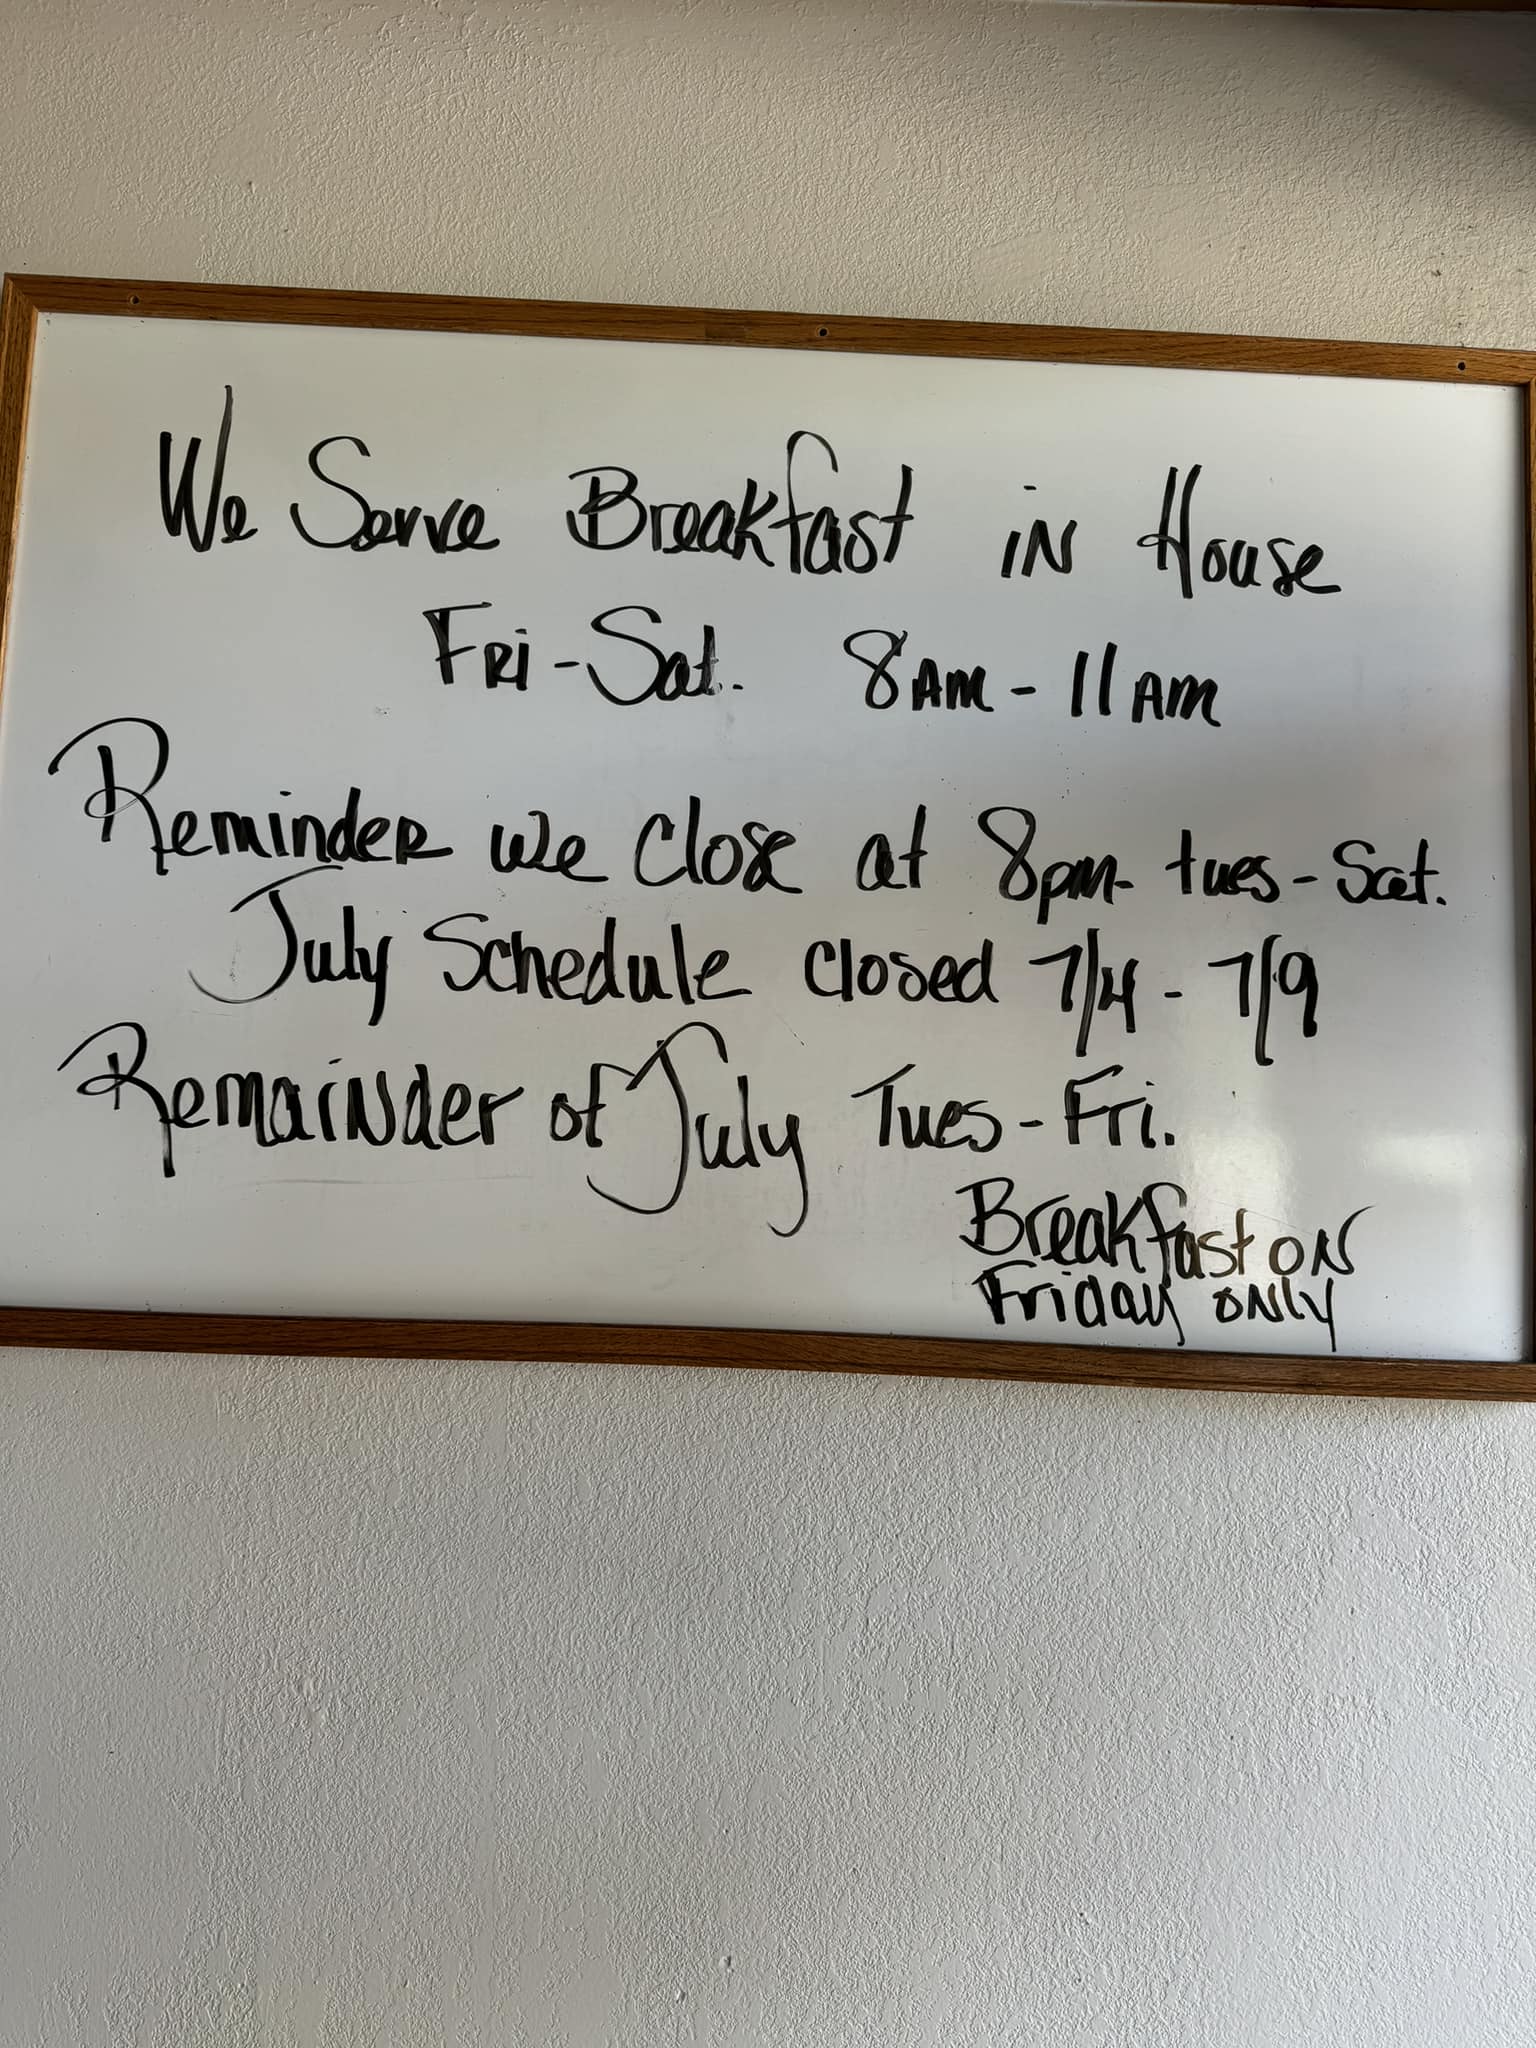 We Serve Breakfast in House
Fri-Sat. 8AM - 11AM
Reminder we close at 8pm- tues-Sat.
July Schedule closed 7/4 - 7/9
Remainder of July Tues-Fri.
Breakfast on
Friday only